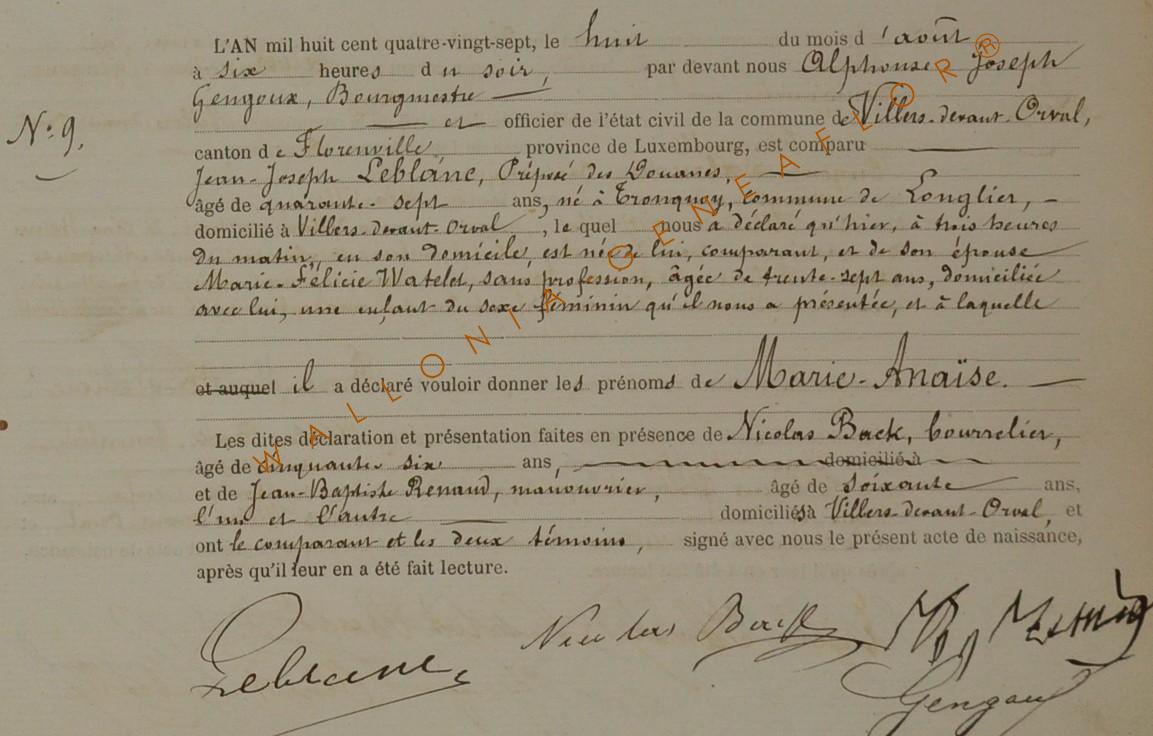 L'AN mil huit cent quatre-vingt-sept, le huit du mois d'août
à six heures du soir, par devant nous Alphonse Joseph
Gengoux, Bourgmestre
N° 9.
et officier de l'état civil de la commune de Villers-devant-Orval,
canton de Florenville, province de Luxembourg, est comparu
Jean-Joseph Leblanc, Préposé des Douanes,
âgé de quarante-sept ans, né à Tronquoy, commune de Longlier,
domicilié à Villers-devant-Orval, lequel nous a déclaré qu'hier, à trois heures
du matin, en son domicile, est née de lui, comparant, et de son épouse
Marie-Félicie Watelet, sans profession, âgée de trente-sept ans, domiciliée
avec lui, une enfant du sexe féminin qu'il nous a présentée, et à laquelle
et auquel il a déclaré vouloir donner les prénoms de Marie-Anaïse.
Les dites déclaration et présentation faites en présence de Nicolas Back, bourrelier,
âgé de cinquante six ans, domicilié à
et de Jean-Baptiste Renaud, manouvrier, âgé de soixante ans,
l'un et l'autre domiciliés à Villers-devant-Orval, et
ont le comparant et les deux témoins, signé avec nous le présent acte de naissance,
après qu'il leur en a été fait lecture.
Leblanc Nicolas Back
Gengoux
WALLONIA GENEAFLOR®